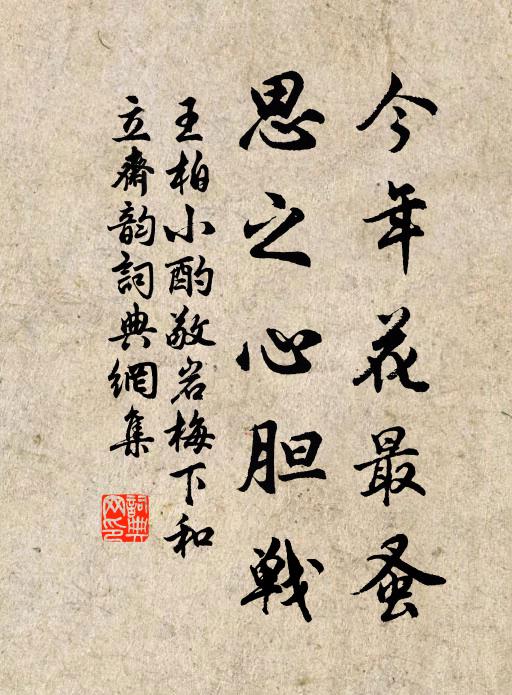 今年花最蚤
思之心胆戦
王柏小酌敬岩梅下和
立斋韵詞典網集
詞典
网印